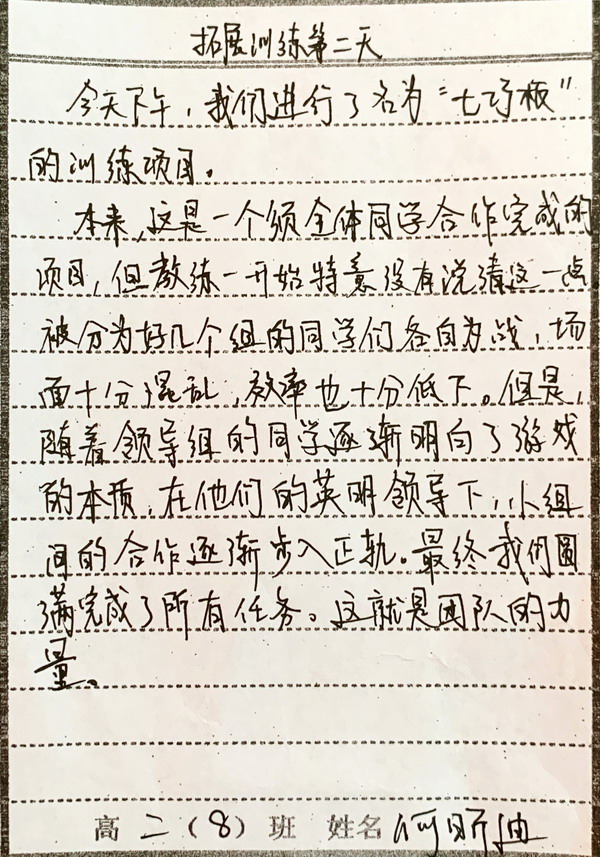 拓展训练第二天
今天下午，我们进行了名为“七巧板”
的训练项目。
本来，这是一个须全体同学合作完成的
项目，但教练一开始特意没有说清这一点
被分为好几个组的同学们各自为战，场
面十分混乱，效率也十分低下。但是，
随着领导组的同学逐渐明白了游戏
的本质，在他们的英明领导下，小组
间的合作逐渐步入正轨。最终我们圆
满完成了所有任务。这就是团队的力
量。
高二（8）班 姓名 何昕迪